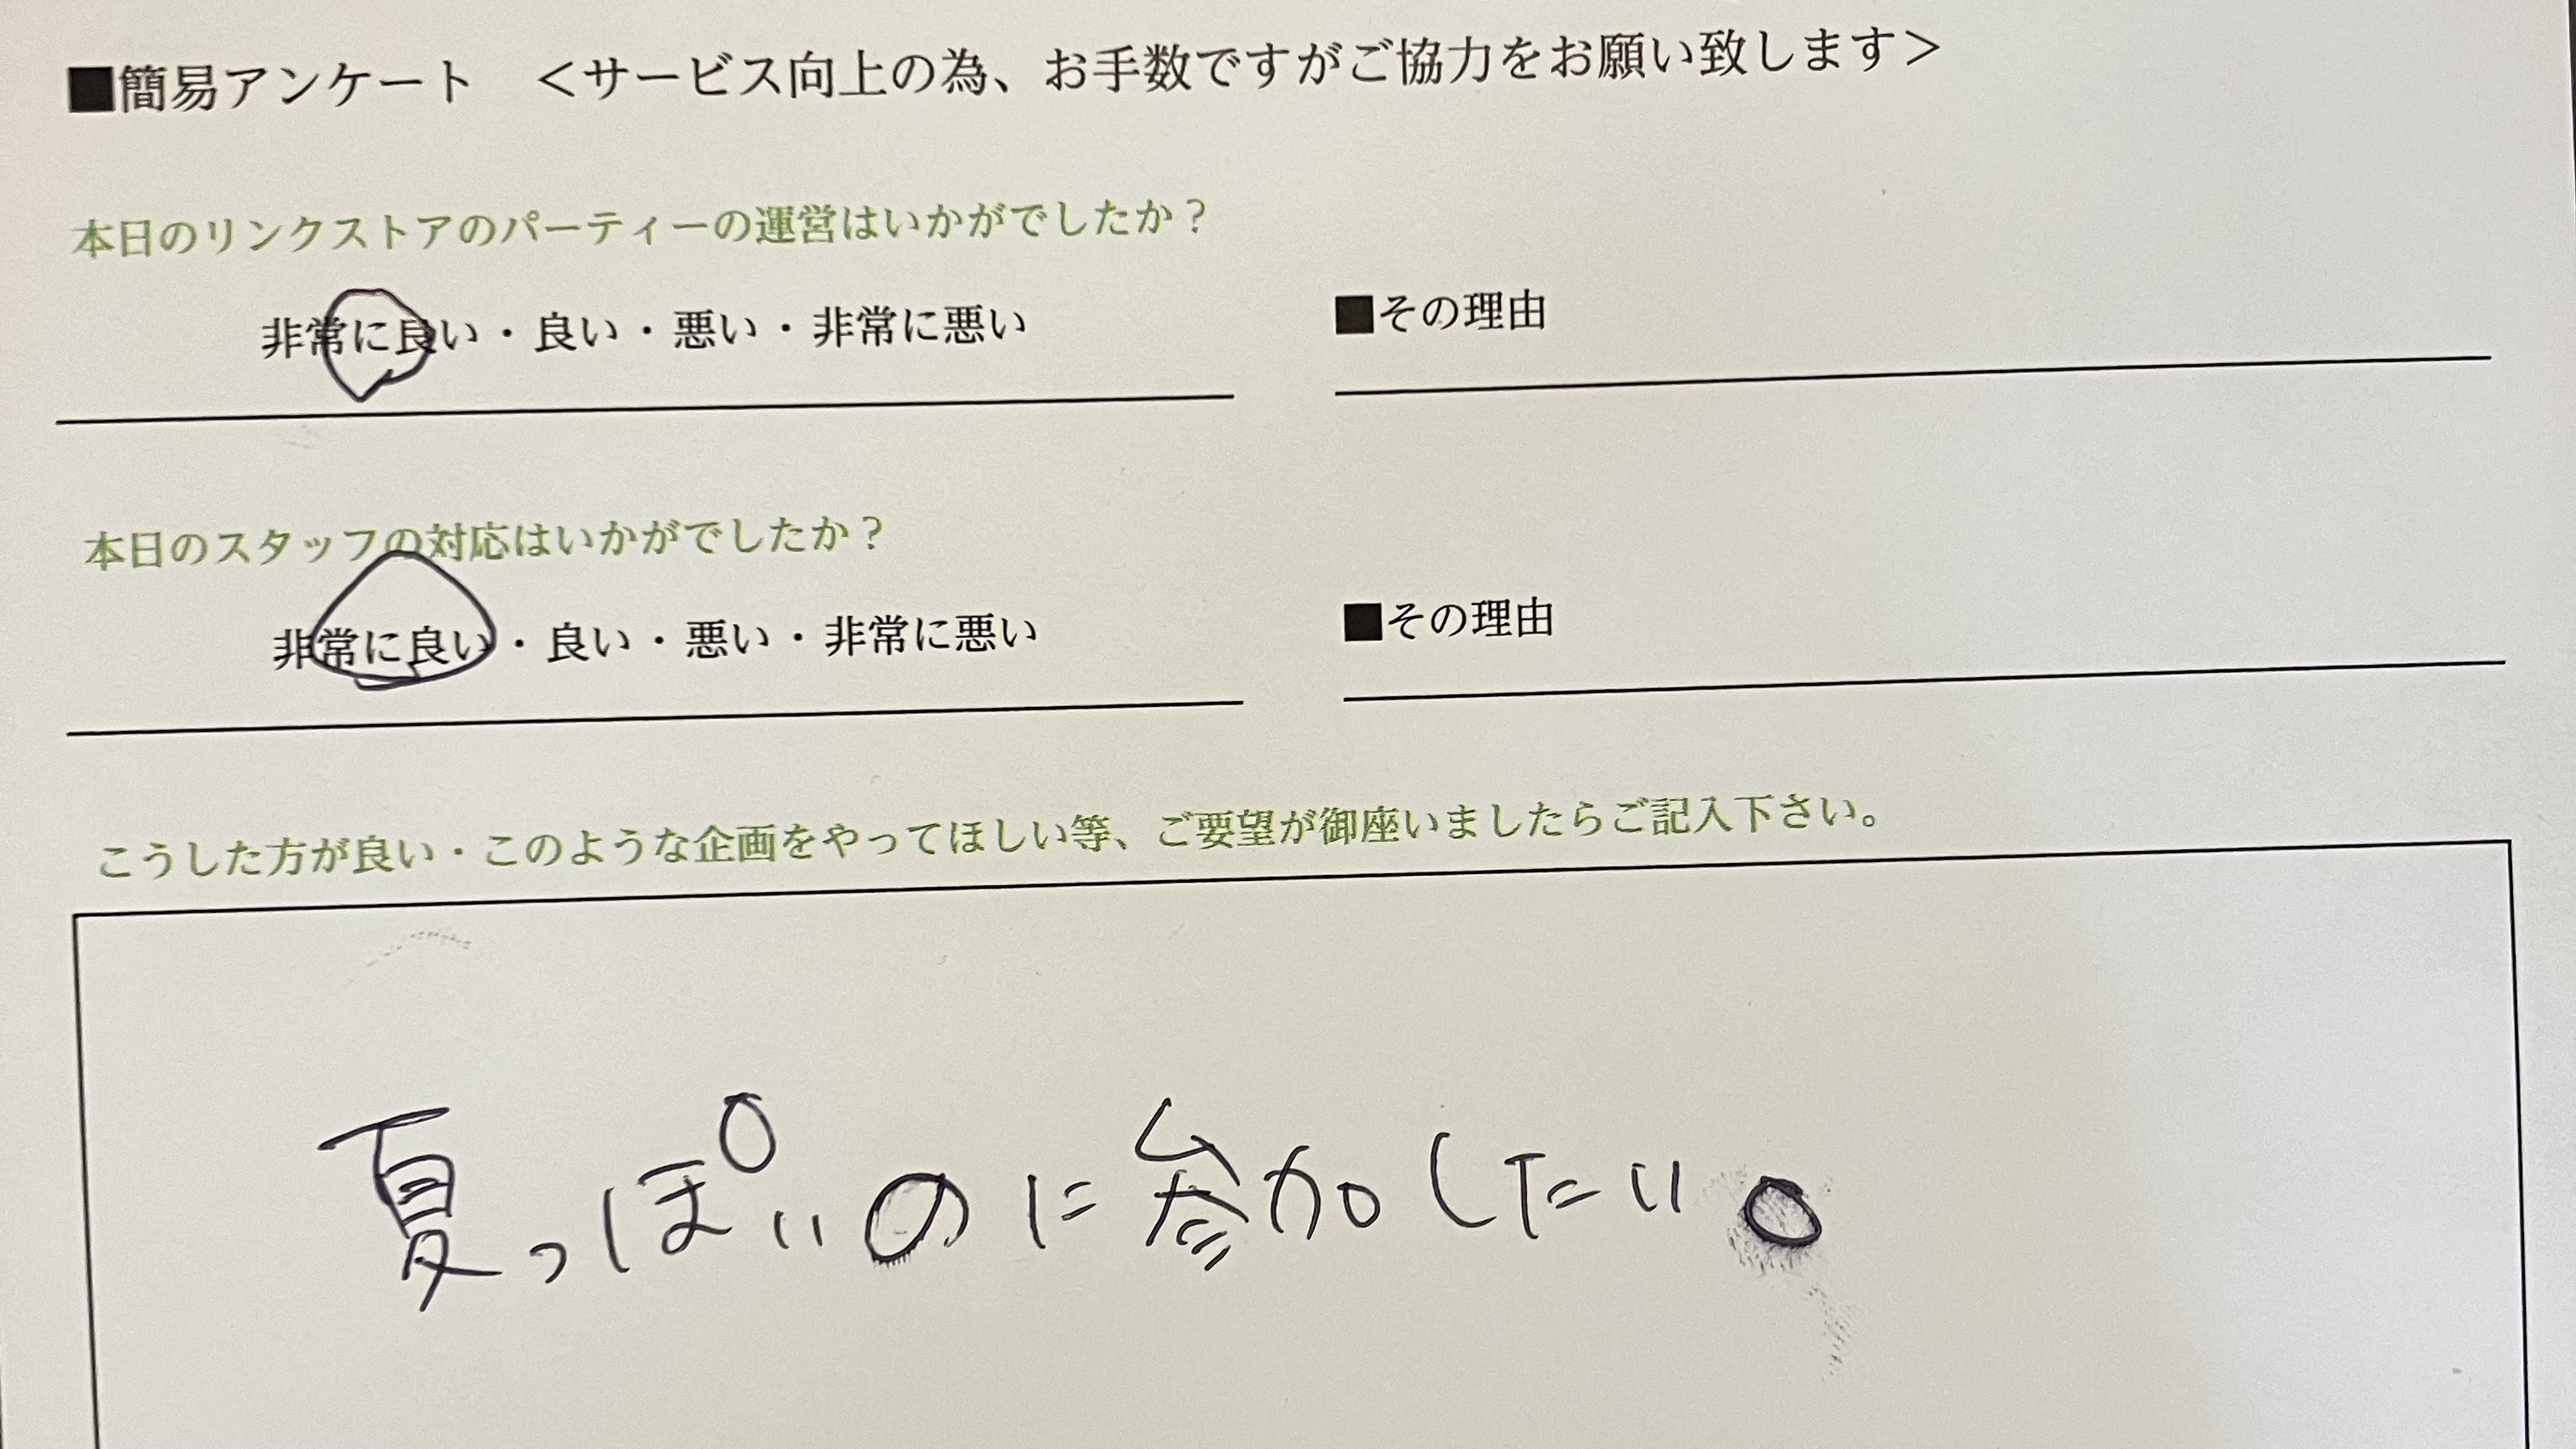 ■簡易アンケート　＜サービス向上の為、お手数ですがご協力をお願い致します＞
本日のリンクストアのパーティーの運営はいかがでしたか？
非常に良い・良い・悪い・非常に悪い　■その理由
本日のスタッフの対応はいかがでしたか？
非常に良い・良い・悪い・非常に悪い　■その理由
こうした方が良い・このような企画をやってほしい等、ご要望が御座いましたらご記入下さい。
夏っぽいのに参加したい。